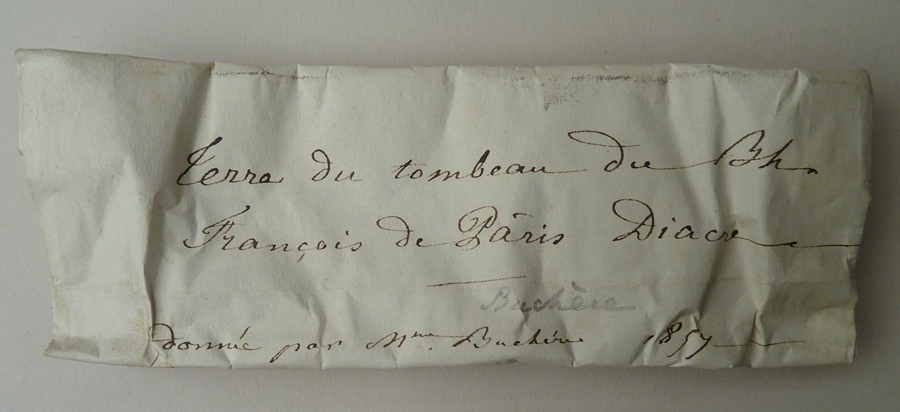 Terre du tombeau du Bh.
François de Pâris Diacre
Buchère
donnée par Mme. Buchère 1857